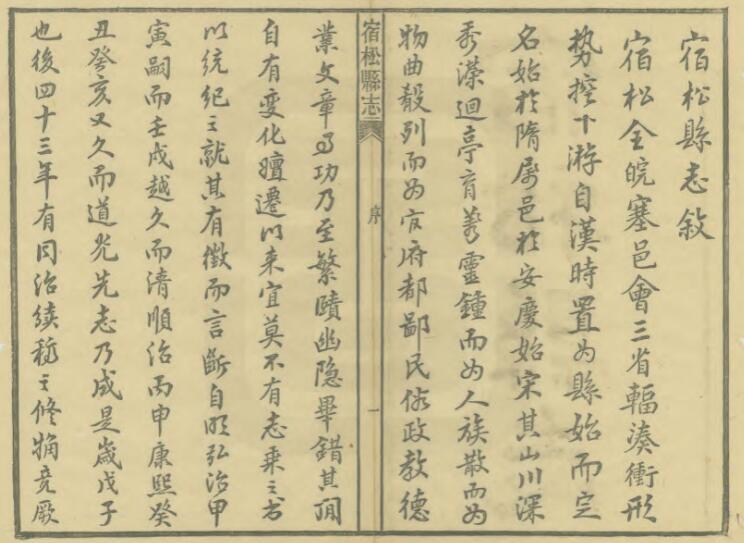 宿松縣志敘
宿松全皖塞邑會三省輻湊衝形
勢控下游自漢時置為縣始而定
名始於隋屬邑於安慶始宋其山川深
秀瀠迴亭育靈鍾而為人族散而為
物曲殽列而為官府都鄙民俗政教德
宿松縣志
序
一
業文章事功乃至繁賾幽隱畢錯其間
自有變化嬗遷以來宜莫不有志乘之書
以統紀之就其有徵而言斷自明弘治甲
寅嗣而壬戌越久而清順治丙申康熙癸
丑癸亥又久而道光先志乃成是歲戊子
也後四十三年有同治續之修竟厥